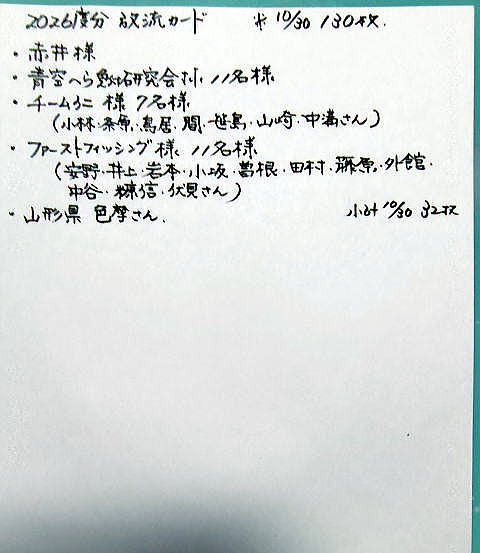 2026度分 放流カード ※ 10/30 130枚.
・赤井様
・青空へら 研究会様. 11名様
・チーム 様 7名様
(小林・条原・鳥居・間・笹島・山崎・中溝さん)
・ファーストフィッシング様. 11名様
(安野・井上・岩本・小坂・曽根・田村・藤原・外館・
中谷・糠信・伏見さん)
・山形県 色摩さん. 小計 10/30 32枚